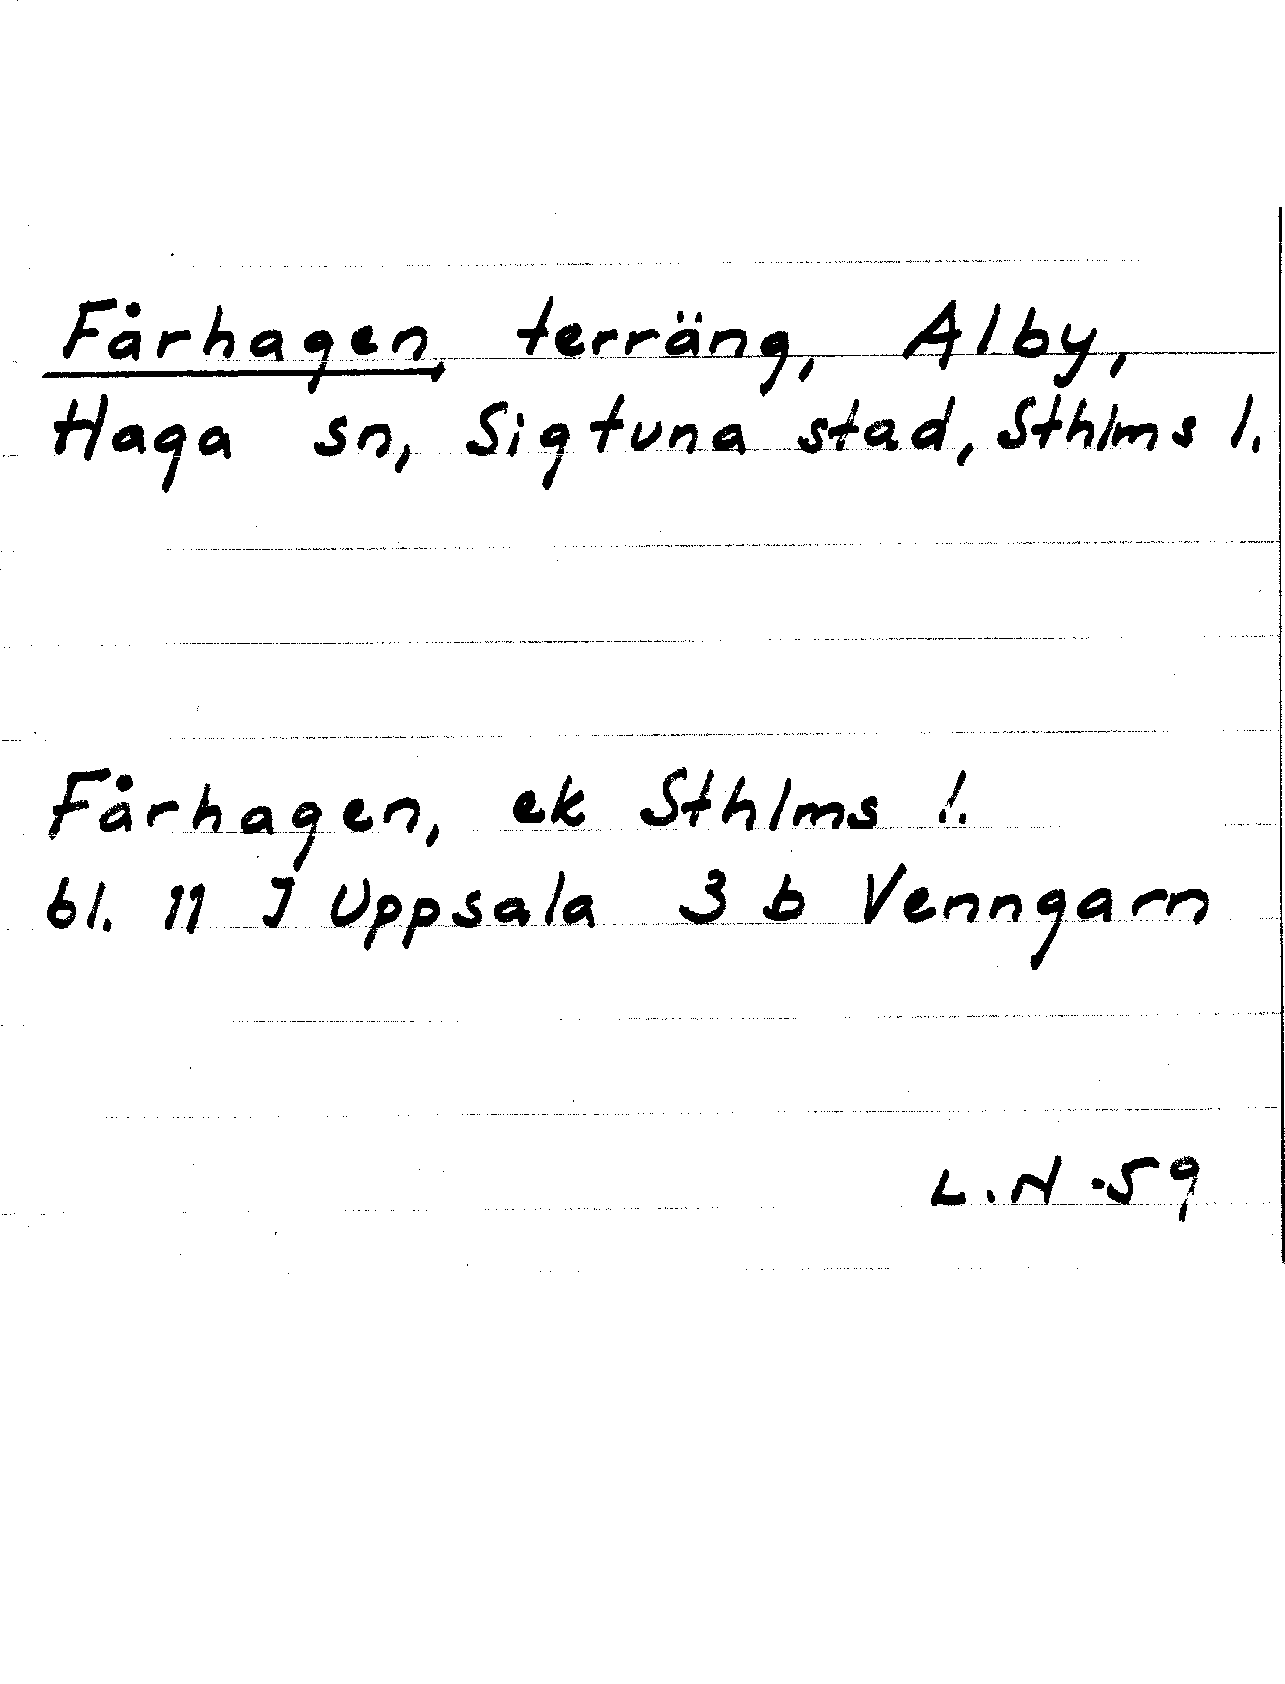 Fårhagen, terräng, Alby,
Haga sn, Sigtuna stad, Sthlms l.
Fårhagen, ek Sthlms l.
bl. 11 J Uppsala 3 b Venngarn
L.N -59